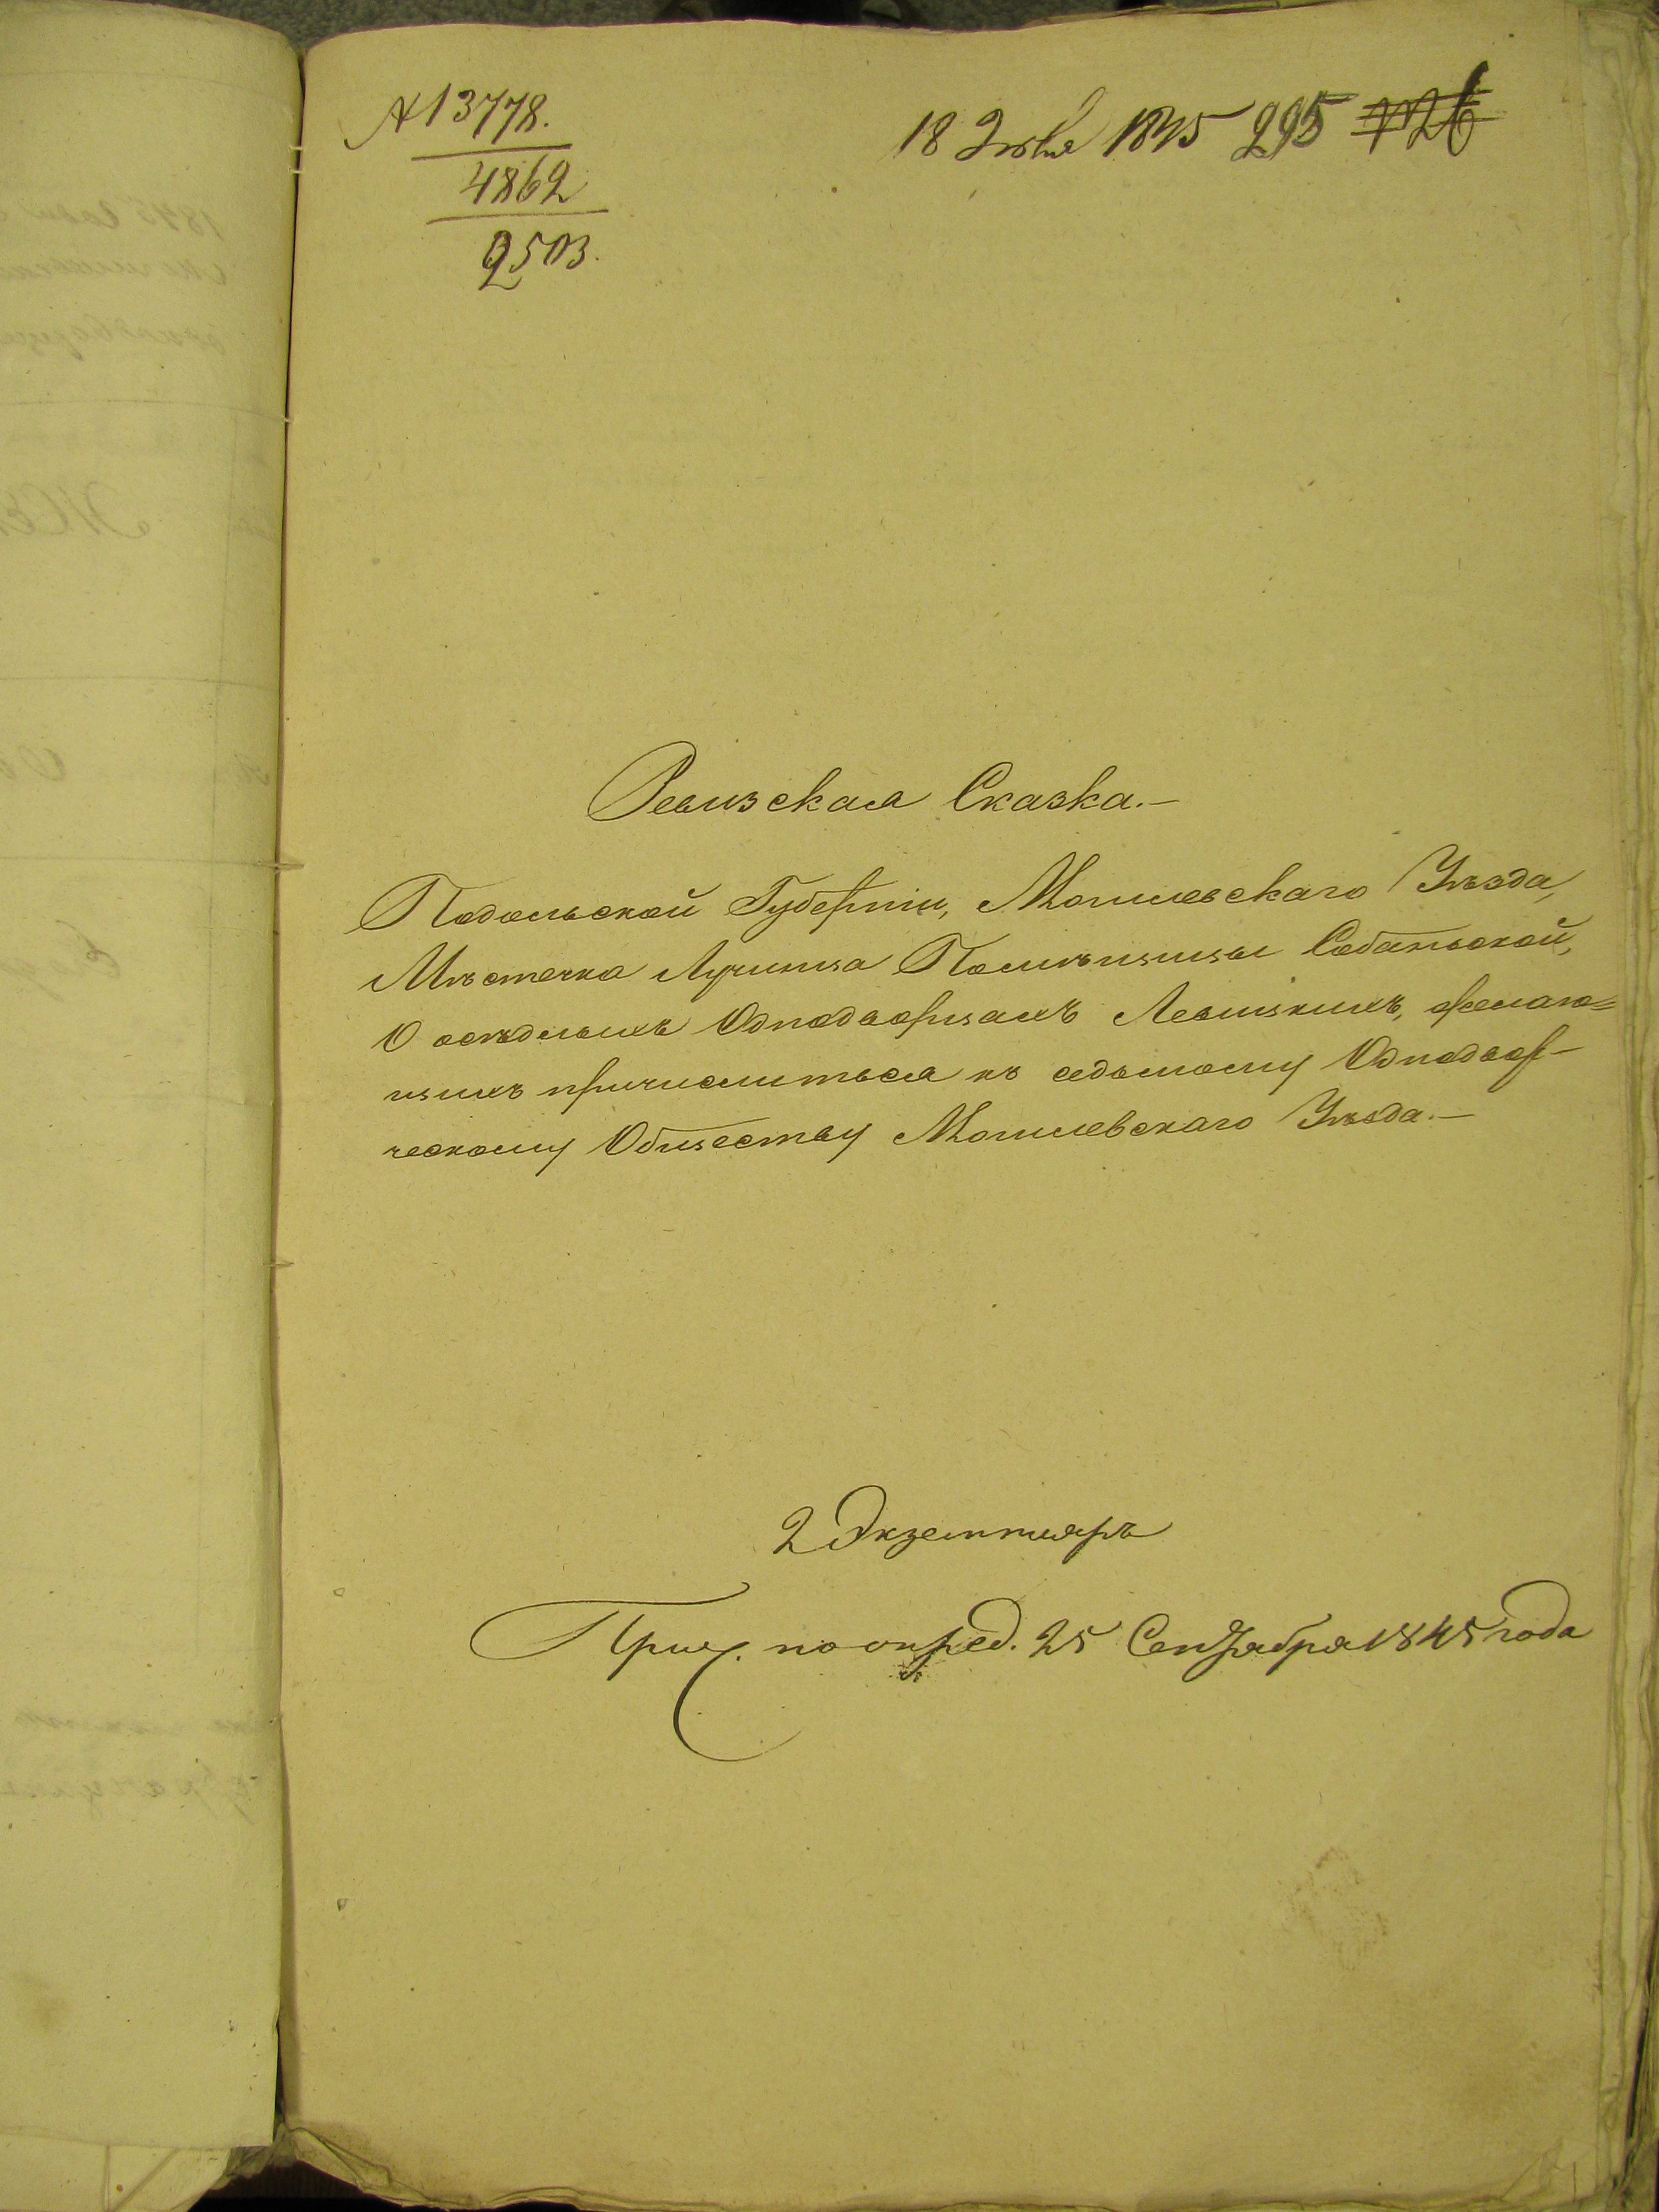 № 13778.
4862
2503.
18 Июля 1845 295
Ревизская Сказка.—
Подольской Губерніи, Могилевскаго Уѣзда,
Мѣстечка Лучинца Помѣщицы Собаньской,
О осѣдлыхъ Однодворцахъ Левицкихъ, желаю=
щихъ причислиться къ седьмому Однодвор-
ческому Обществу Могилевскаго Уѣзда.—
2 Экземпляръ
Прич. по опред. 25 Сентября 1845 года